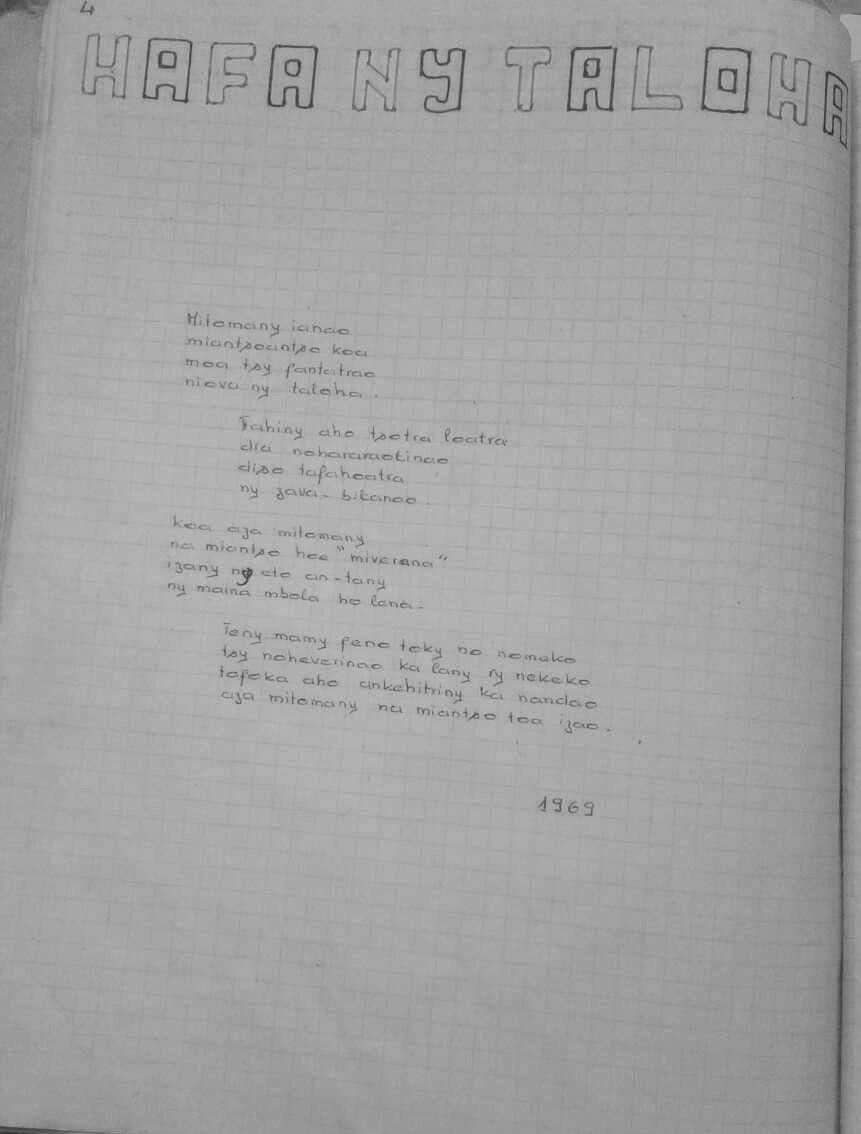 4
HAFA NY TALOHA
Mitomany ianao
miantsoantso koa
moa tsy fantatrao
niova ny taloha.
Fahiny aho tsotra loatra
dia nohararaotinao
diso tafahoatra
ny zava-bitanao.
koa aza mitomany
na miantso hoe "miverena"
izany ny eto an-tany
ny maina mbola ho lena.
Teny mamy feno toky no nomeko
tsy noheverinao ka lany ny nekeko
tofoka aho ankehitriny ka nandao
aza mitomany na miantso toa izao.
1969